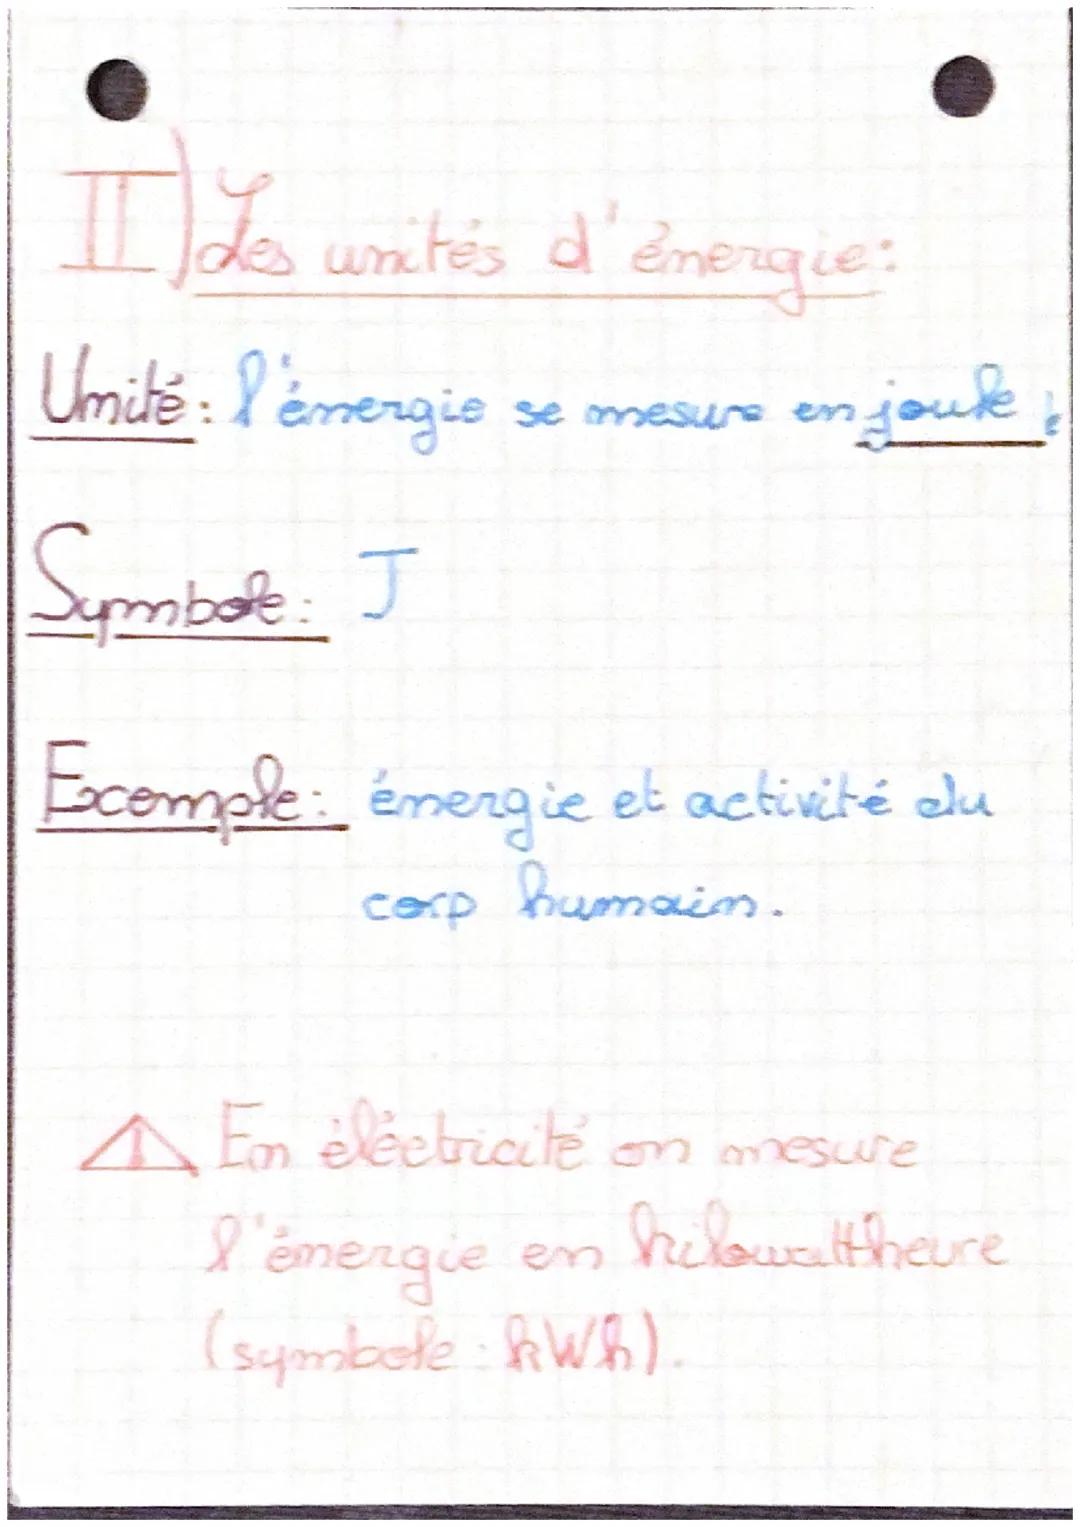 II) Les unités d'énergie:
Unité: l'énergie se mesure en joule ;
Symbole: J
Exemple: énergie et activité du
corp humain.
⚠ En éléctricité on mesure
l'énergie en kilowattheure
(symbole : kWh).